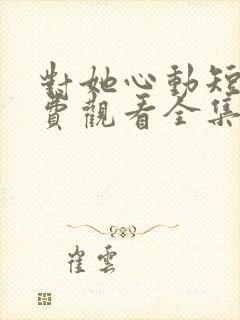 對她心動短
費觀看全集
崔雲